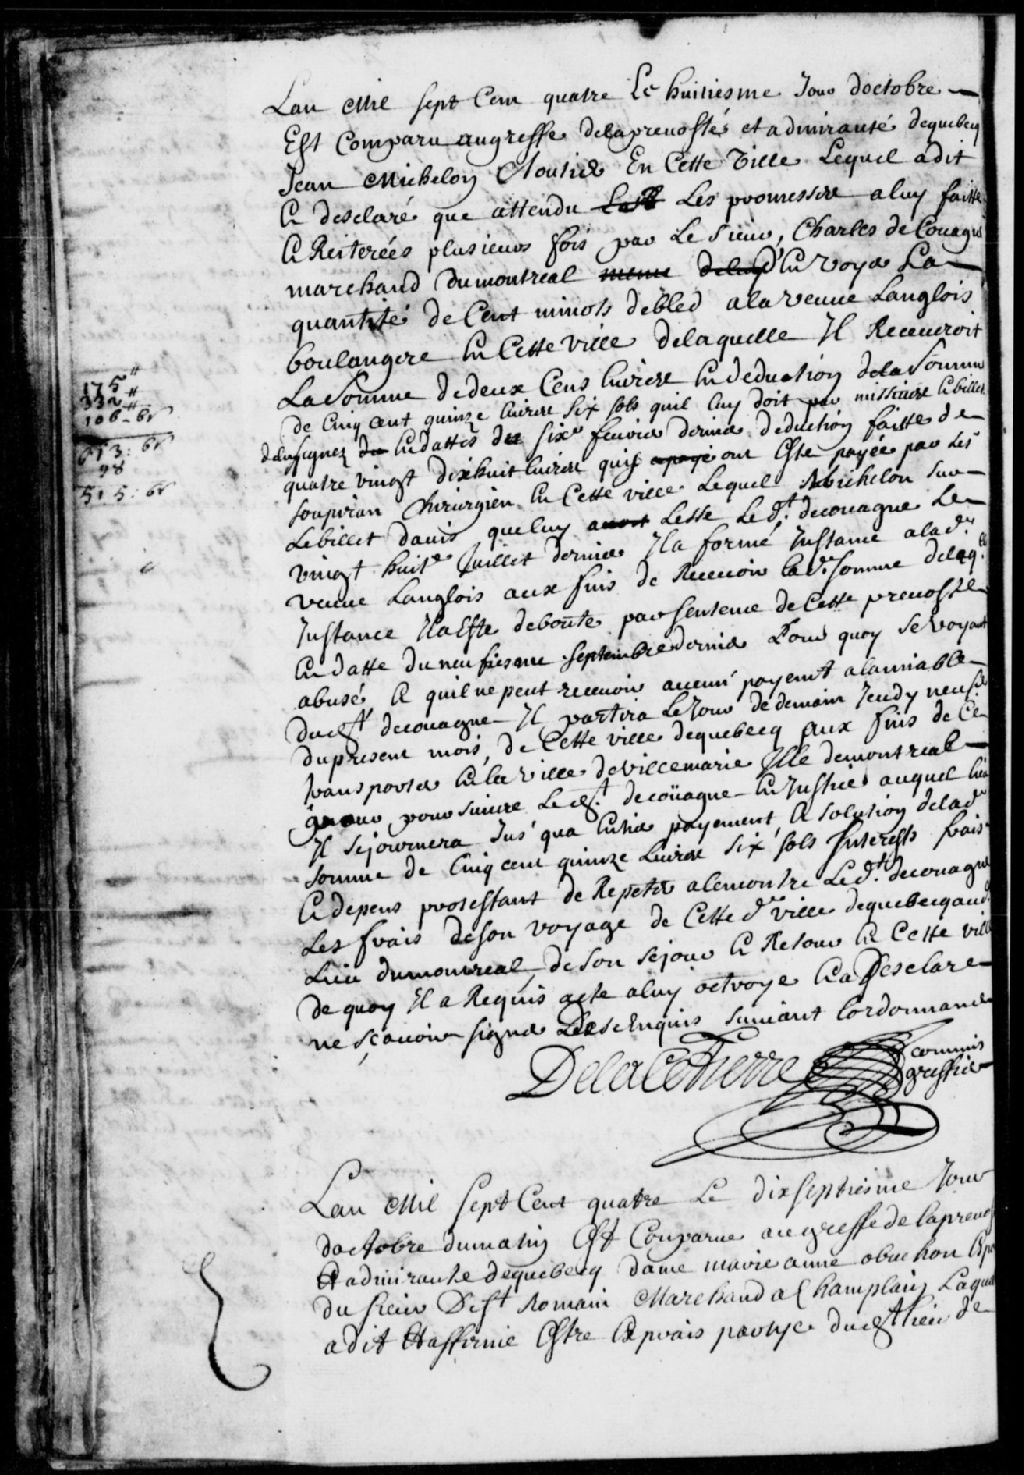 Lan Mil sept Cens quatre Le huitiesme Jour doctobre
Est Comparu augreffe delaprevosté et admirauté dequebecq
Jean Michelon Cloutier En Cette Ville Lequel adit
Et desclaré que attendu Les promesses aluy faitte
Et Reiterées plusieurs fois par Le Sieur Charles de Couagne
marchand dumontreal denvoyer La
quantité de Cent minots debled alaveuve Langlois
boulangere En Cette ville delaquelle Il Recevroit
La Somme dedeux Cens livres En deduction delaSomme
de Cinq cent quinze livres six sols quil luy doit par missive Et billet
deluy signez Endattes du sixe fevrier dernier deduction faitte de
quatre vingt dixhuit livres quil ont Este payée par Les
Soupiran Chirurgien En Cette ville Lequel Michelon sur
Lebillet davis queluy Lesse Led.t decouagne Le
vingt huite Juillet dernier Ila formé Instance alad.e
veuve Langlois aux fins de Recevoir lad.e somme delaq.lle
Instance Ila Este deboutte par sentence deCette prevosté
En datte duneufiesme septembre dernier Pour quoy se voyant
abusé Et quil ne peut recevoir aucun payemt alamiable
dud.t decouagne Il partira LeJour de demain Jeudy neufe
dupresent mois de Cette ville dequebecq aux fins de Ce
transporter En la ville devillemarie Isle demontreal
pour suivre Led.t decoüagne En Justice auquel lieu
Il sejournera Jusqua Entier payement Et solution delad.e
somme de Cinq cent quinze Livres six sols Interests frais
Et depens protestant de Repeter alencontre Led.t decouagne
Les frais deson voyage de Cette d.e ville dequebecq aud.
Lieu dumontreal, de son sejour Et Retour En Cette ville
de quoy Il a Requis acte aluy octroyé Et a Desclaré
ne sçavoir signer Enquis suivant Lordonnance
DelaCetierre commis
greffier
175#
332#
106-6s
613:6s
98
515:6s
Lan Mil sept Cent quatre Le dixseptiesme Jour
doctobre dumatin Est Comparue augreffe de laprevosté
Et admirauté dequebecq dame marie anne obuchon
du sieur De St Romain Marchand a Champlain Laquelle
adit Et affirmé Estre Exprais partye dud.t lieu de